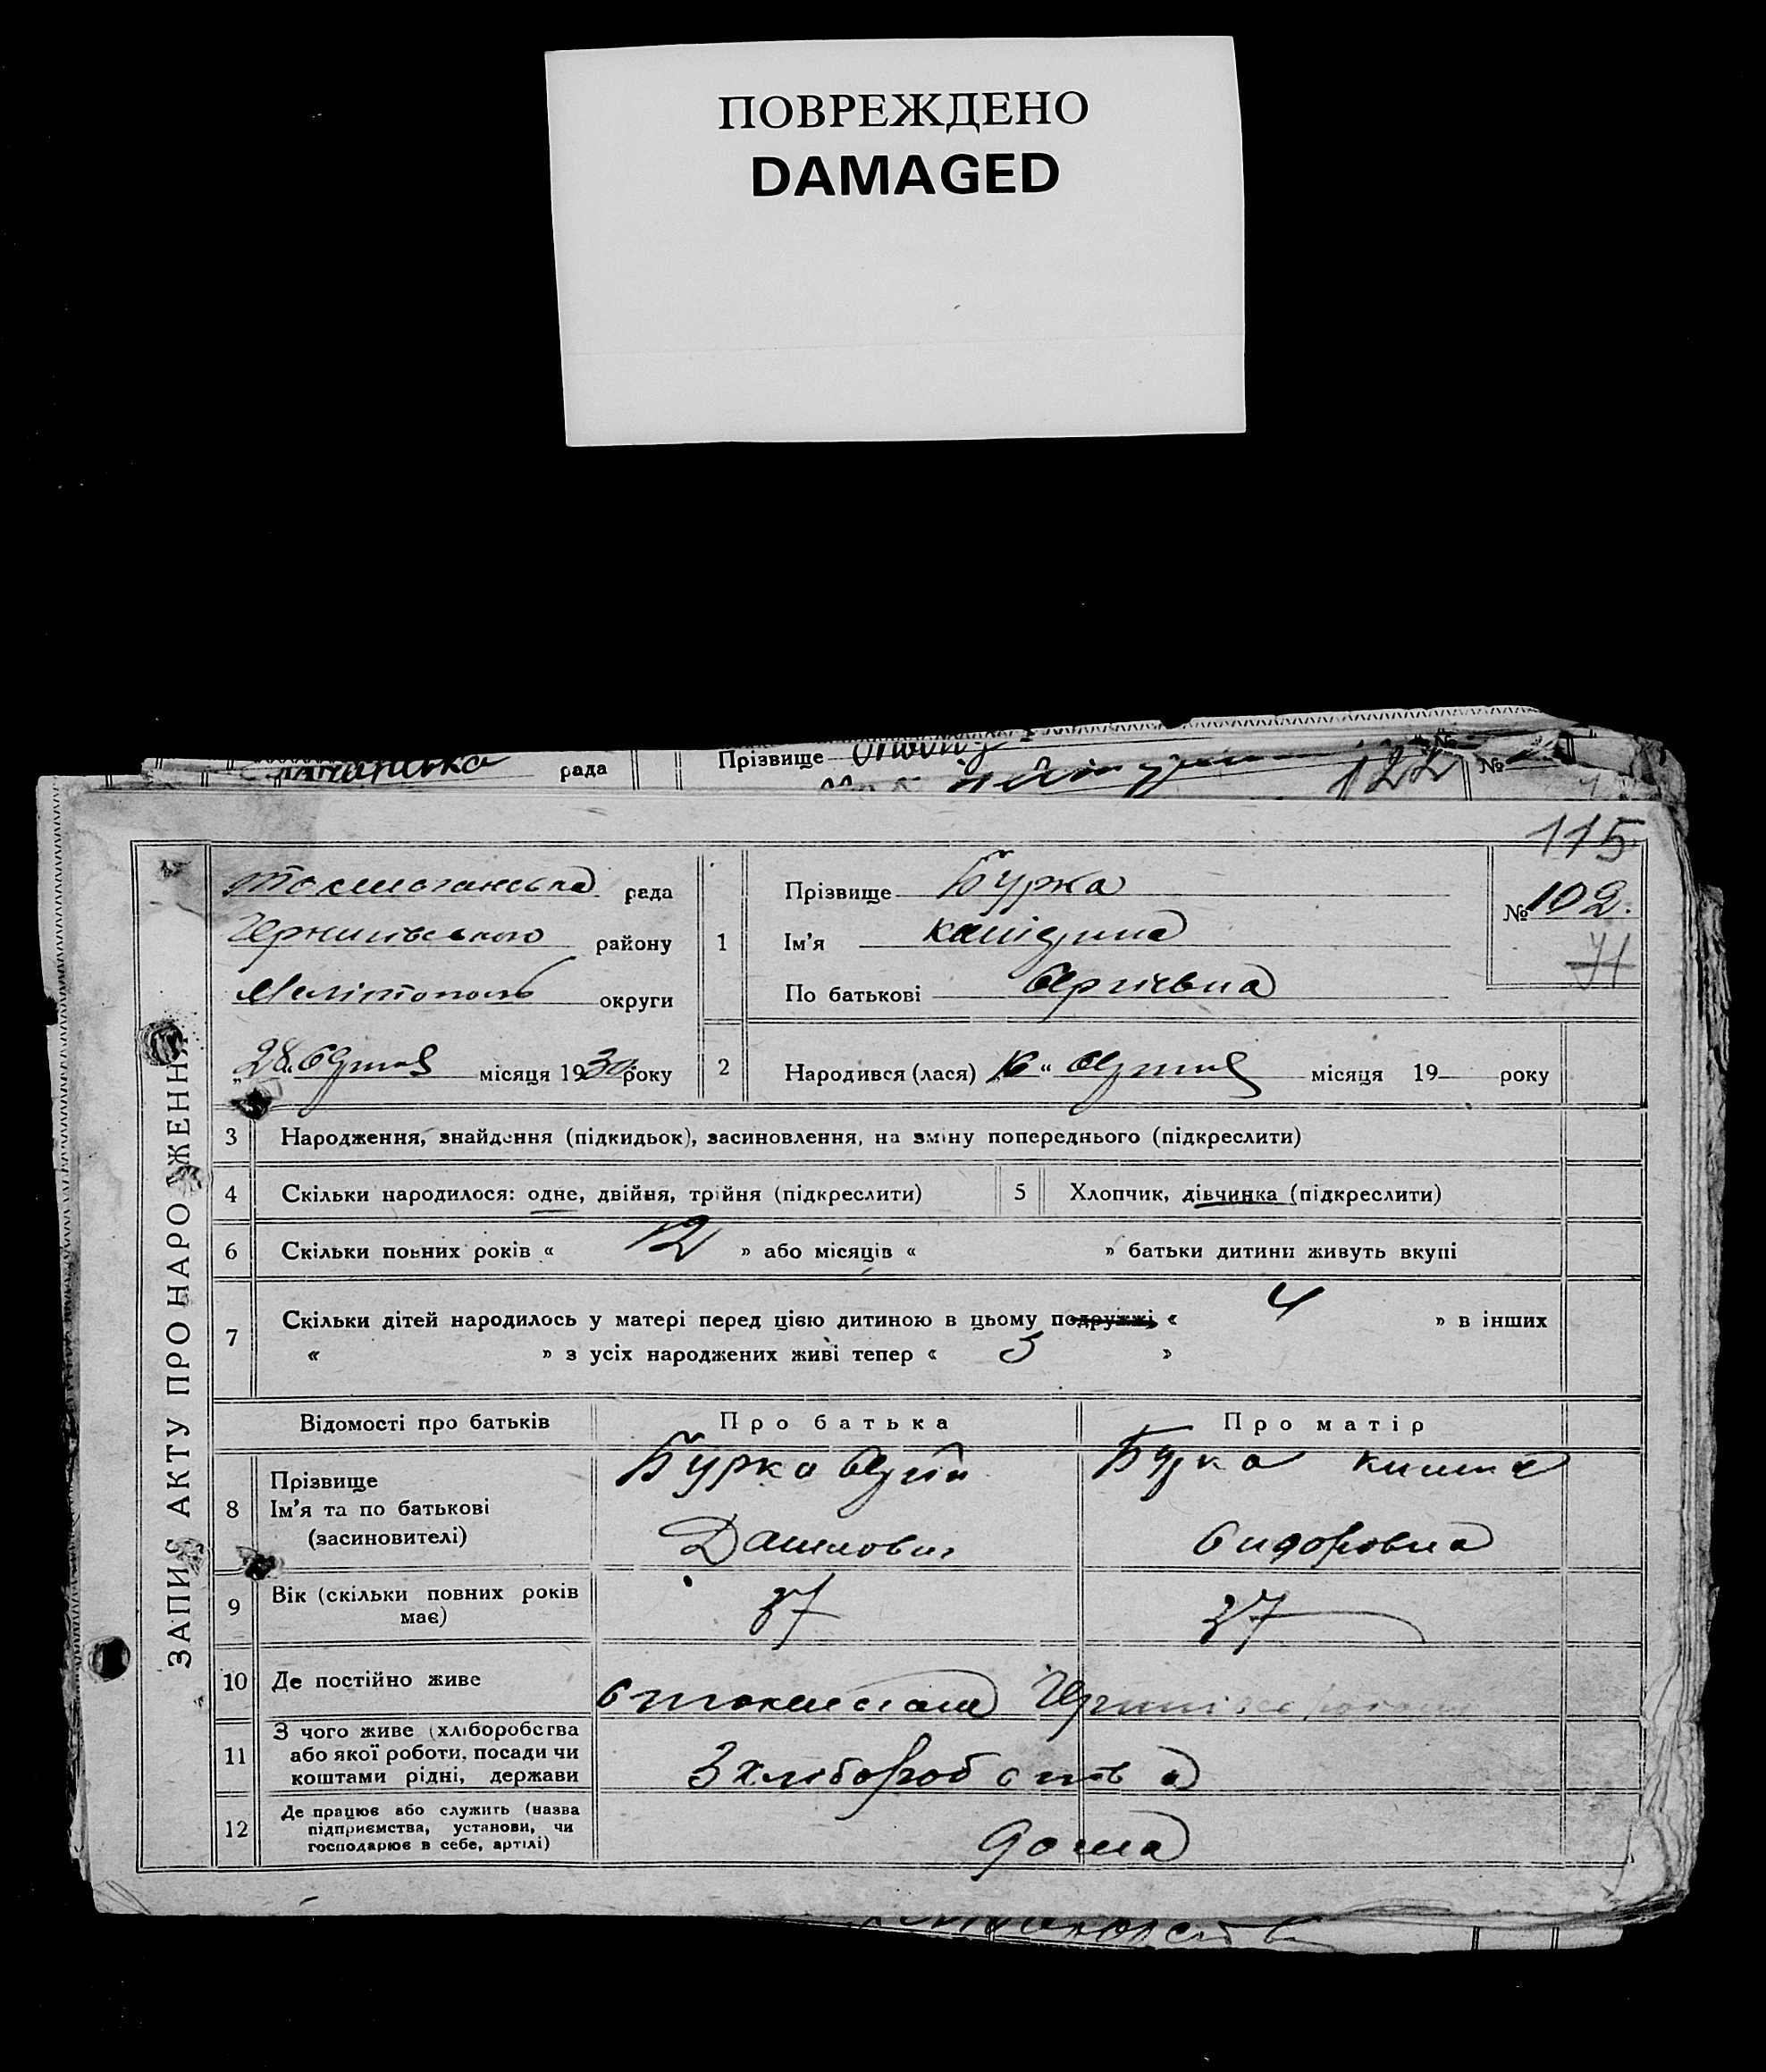 ПОВРЕЖДЕНО
DAMAGED
рада Прізвище 122 №
115
Токмачанська рада
Чернигівського району
Мелітополь округи
„28“ місяця 1930 року
1 Прізвище Бурка
Ім'я
По батькові Сергієвна
№ 102.
71
2 Народився (лася) „16“ місяця 19 року
ЗАПИС АКТУ ПРО НАРОДЖЕННЯ
3 Народження, знайдення (підкидьок), засиновлення, на зміну попереднього (підкреслити)
4 Скільки народилося: одне, двійня, трійня (підкреслити) 5 Хлопчик, дівчинка (підкреслити)
6 Скільки повних років « 12 » або місяців « » батьки дитини живуть вкупі
7 Скільки дітей народилось у матері перед цією дитиною в цьому подружжі « 4 » в інших
« » з усіх народжених живі тепер « 5 »
Відомості про батьків Про батька Про матір
8 Прізвище
Ім'я та по батькові
(засиновителі)
Бурка Сергій
Данилович
Бурка
Сидоровна
9 Вік (скільки повних років
має)
37 37
10 Де постійно живе
11 З чого живе (хліборобства
або якої роботи, посади чи
коштами рідні, держави
З хліборобства
12 Де працює або служить (назва
підприємства, установи, чи
господарює в себе, артілі)
дома